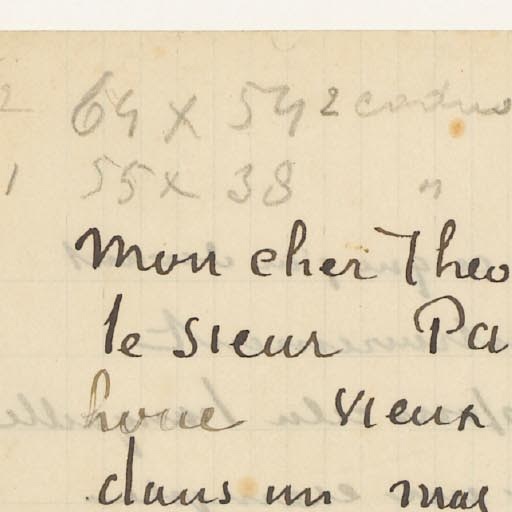 2 64 x 54 2 cadres
1 55 x 38 "
Mon cher Theo
le sieur Pa
houe vieux
dans un mas